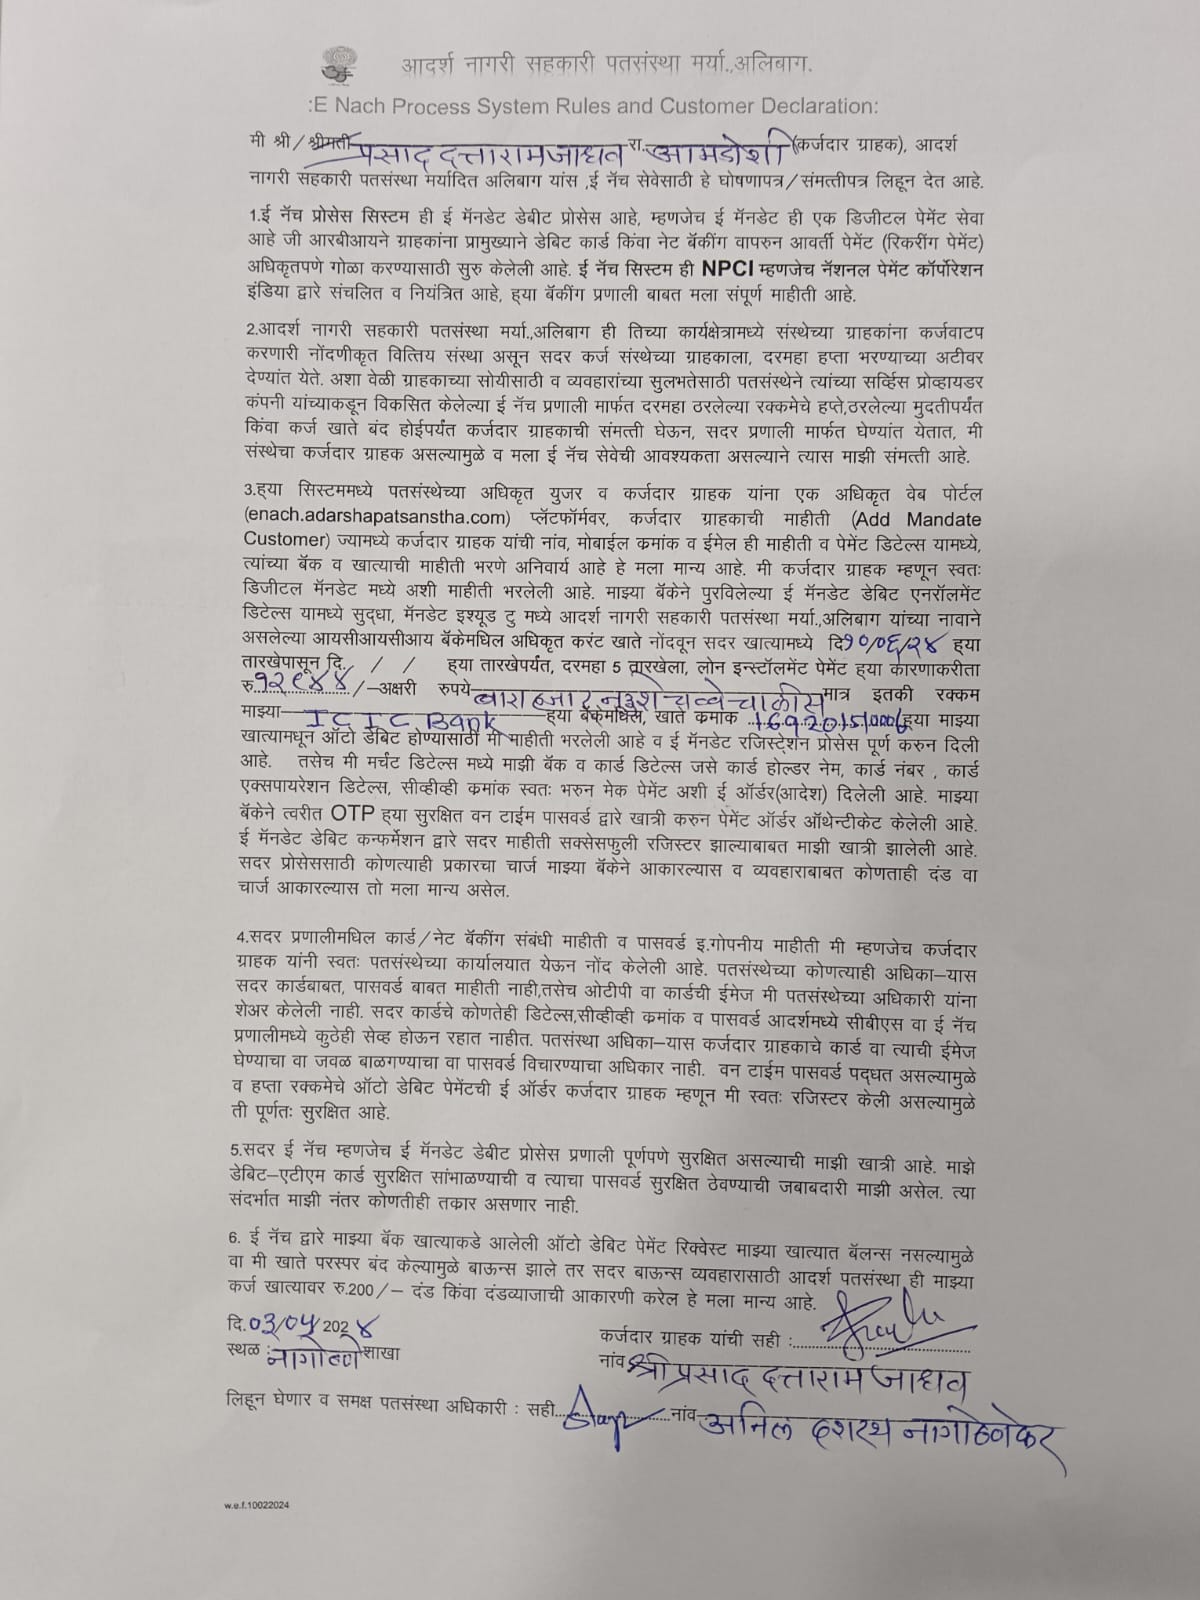 आदर्श नागरी सहकारी पतसंस्था मर्या.,अलिबाग.
:E Nach Process System Rules and Customer Declaration:
मी श्री/श्रीमती प्रसाद दत्ताराम जाधव रा. आमडोशी (कर्जदार ग्राहक), आदर्श
नागरी सहकारी पतसंस्था मर्यादित अलिबाग यांस ,ई नॅच सेवेसाठी हे घोषणापत्र/संमत्तीपत्र लिहून देत आहे.
1.ई नॅच प्रोसेस सिस्टम ही ई मॅनडेट डेबीट प्रोसेस आहे, म्हणजेच ई मॅनडेट ही एक डिजीटल पेमेंट सेवा
आहे जी आरबीआयने ग्राहकांना प्रामुख्याने डेबिट कार्ड किंवा नेट बॅकींग वापरुन आवर्ती पेमेंट (रिकरींग पेमेंट)
अधिकृतपणे गोळा करण्यासाठी सुरु केलेली आहे. ई नॅच सिस्टम ही NPCI म्हणजेच नॅशनल पेमेंट कॉर्पोरेशन
इंडिया द्वारे संचलित व नियंत्रित आहे, ह्या बॅकींग प्रणाली बाबत मला संपूर्ण माहीती आहे.
2.आदर्श नागरी सहकारी पतसंस्था मर्या.,अलिबाग ही तिच्या कार्यक्षेत्रामध्ये संस्थेच्या ग्राहकांना कर्जवाटप
करणारी नोंदणीकृत वित्तिय संस्था असून सदर कर्ज संस्थेच्या ग्राहकाला, दरमहा हप्ता भरण्याच्या अटीवर
देण्यांत येते. अशा वेळी ग्राहकाच्या सोयीसाठी व व्यवहारांच्या सुलभतेसाठी पतसंस्थेने त्यांच्या सर्व्हिस प्रोव्हायडर
कंपनी यांच्याकडून विकसित केलेल्या ई नॅच प्रणाली मार्फत दरमहा ठरलेल्या रक्कमेचे हप्ते,ठरलेल्या मुदतीपर्यंत
किंवा कर्ज खाते बंद होईपर्यंत कर्जदार ग्राहकाची संमत्ती घेऊन, सदर प्रणाली मार्फत घेण्यांत येतात, मी
संस्थेचा कर्जदार ग्राहक असल्यामुळे व मला ई नॅच सेवेची आवश्यकता असल्याने त्यास माझी संमत्ती आहे.
3.ह्या सिस्टममध्ये पतसंस्थेच्या अधिकृत युजर व कर्जदार ग्राहक यांना एक अधिकृत वेब पोर्टल
(enach.adarshapatsanstha.com) प्लॅटफॉर्मवर, कर्जदार ग्राहकाची माहीती (Add Mandate
Customer) ज्यामध्ये कर्जदार ग्राहक यांची नांव, मोबाईल क्रमांक व ईमेल ही माहीती व पेमेंट डिटेल्स यामध्ये,
त्यांच्या बॅक व खात्याची माहीती भरणे अनिवार्य आहे हे मला मान्य आहे. मी कर्जदार ग्राहक म्हणून स्वतः
डिजीटल मॅनडेट मध्ये अशी माहीती भरलेली आहे. माझ्या बॅकेने पुरविलेल्या ई मॅनडेट डेबिट एनरॉलमेंट
डिटेल्स यामध्ये सुद्धा, मॅनडेट इश्यूड टु मध्ये आदर्श नागरी सहकारी पतसंस्था मर्या.,अलिबाग यांच्या नावाने
असलेल्या आयसीआयसीआय बॅकेमधिल अधिकृत करंट खाते नोंदवून सदर खात्यामध्ये दि १०/०६/२४ ह्या
तारखेपासून दि. / / ह्या तारखेपर्यंत, दरमहा 5 तारखेला, लोन इन्स्टॉलमेंट पेमेंट ह्या कारणाकरीता
रु. १२९४४ /–अक्षरी रुपये बारा हजार नऊशे चव्वेचाळीस मात्र इतकी रक्कम
माझ्या ICIC Bank ह्या बॅकेमधिल, खाते क्रमांक ह्या माझ्या
खात्यामधून ऑटो डेबिट होण्यासाठी मी माहीती भरलेली आहे व ई मॅनडेट रजिस्ट्रेशन प्रोसेस पूर्ण करुन दिली
आहे. तसेच मी मर्चंट डिटेल्स मध्ये माझी बॅक व कार्ड डिटेल्स जसे कार्ड होल्डर नेम, कार्ड नंबर , कार्ड
एक्सपायरेशन डिटेल्स, सीव्हीव्ही क्रमांक स्वतः भरुन मेक पेमेंट अशी ई ऑर्डर(आदेश) दिलेली आहे. माझ्या
बॅकेने त्वरीत OTP ह्या सुरक्षित वन टाईम पासवर्ड द्वारे खात्री करुन पेमेंट ऑर्डर ऑथेन्टीकेट केलेली आहे.
ई मॅनडेट डेबिट कन्फर्मेशन द्वारे सदर माहीती सक्सेसफुली रजिस्टर झाल्याबाबत माझी खात्री झालेली आहे.
सदर प्रोसेससाठी कोणत्याही प्रकारचा चार्ज माझ्या बॅकेने आकारल्यास व व्यवहाराबाबत कोणताही दंड वा
चार्ज आकारल्यास तो मला मान्य असेल.
4.सदर प्रणालीमधिल कार्ड/नेट बॅकींग संबंधी माहीती व पासवर्ड इ.गोपनीय माहीती मी म्हणजेच कर्जदार
ग्राहक यांनी स्वतः पतसंस्थेच्या कार्यालयात येऊन नोंद केलेली आहे. पतसंस्थेच्या कोणत्याही अधिका–यास
सदर कार्डबाबत, पासवर्ड बाबत माहीती नाही,तसेच ओटीपी वा कार्डची ईमेज मी पतसंस्थेच्या अधिकारी यांना
शेअर केलेली नाही. सदर कार्डचे कोणतेही डिटेल्स,सीव्हीव्ही क्रमांक व पासवर्ड आदर्शमध्ये सीबीएस वा ई नॅच
प्रणालीमध्ये कुठेही सेव्ह होऊन रहात नाहीत. पतसंस्था अधिका–यास कर्जदार ग्राहकाचे कार्ड वा त्याची ईमेज
घेण्याचा वा जवळ बाळगण्याचा वा पासवर्ड विचारण्याचा अधिकार नाही. वन टाईम पासवर्ड पद्धत असल्यामुळे
व हप्ता रक्कमेचे ऑटो डेबिट पेमेंटची ई ऑर्डर कर्जदार ग्राहक म्हणून मी स्वतः रजिस्टर केली असल्यामुळे
ती पूर्णतः सुरक्षित आहे.
5.सदर ई नॅच म्हणजेच ई मॅनडेट डेबीट प्रोसेस प्रणाली पूर्णपणे सुरक्षित असल्याची माझी खात्री आहे. माझे
डेबिट–एटीएम कार्ड सुरक्षित सांभाळण्याची व त्याचा पासवर्ड सुरक्षित ठेवण्याची जबाबदारी माझी असेल. त्या
संदर्भात माझी नंतर कोणतीही तक्रार असणार नाही.
6. ई नॅच द्वारे माझ्या बॅक खात्याकडे आलेली ऑटो डेबिट पेमेंट रिक्वेस्ट माझ्या खात्यात बॅलन्स नसल्यामुळे
वा मी खाते परस्पर बंद केल्यामुळे बाऊन्स झाले तर सदर बाऊन्स व्यवहारासाठी आदर्श पतसंस्था ही माझ्या
कर्ज खात्यावर रु.200/– दंड किंवा दंडव्याजाची आकारणी करेल हे मला मान्य आहे.
दि. ०३/०५/2024
कर्जदार ग्राहक यांची सही :
स्थळ : नागोठणे शाखा
नांव श्री प्रसाद दत्ताराम जाधव
लिहून घेणार व समक्ष पतसंस्था अधिकारी : सही नांव अनिल दशरथ नागोठणेकर
w.e.f.10022024